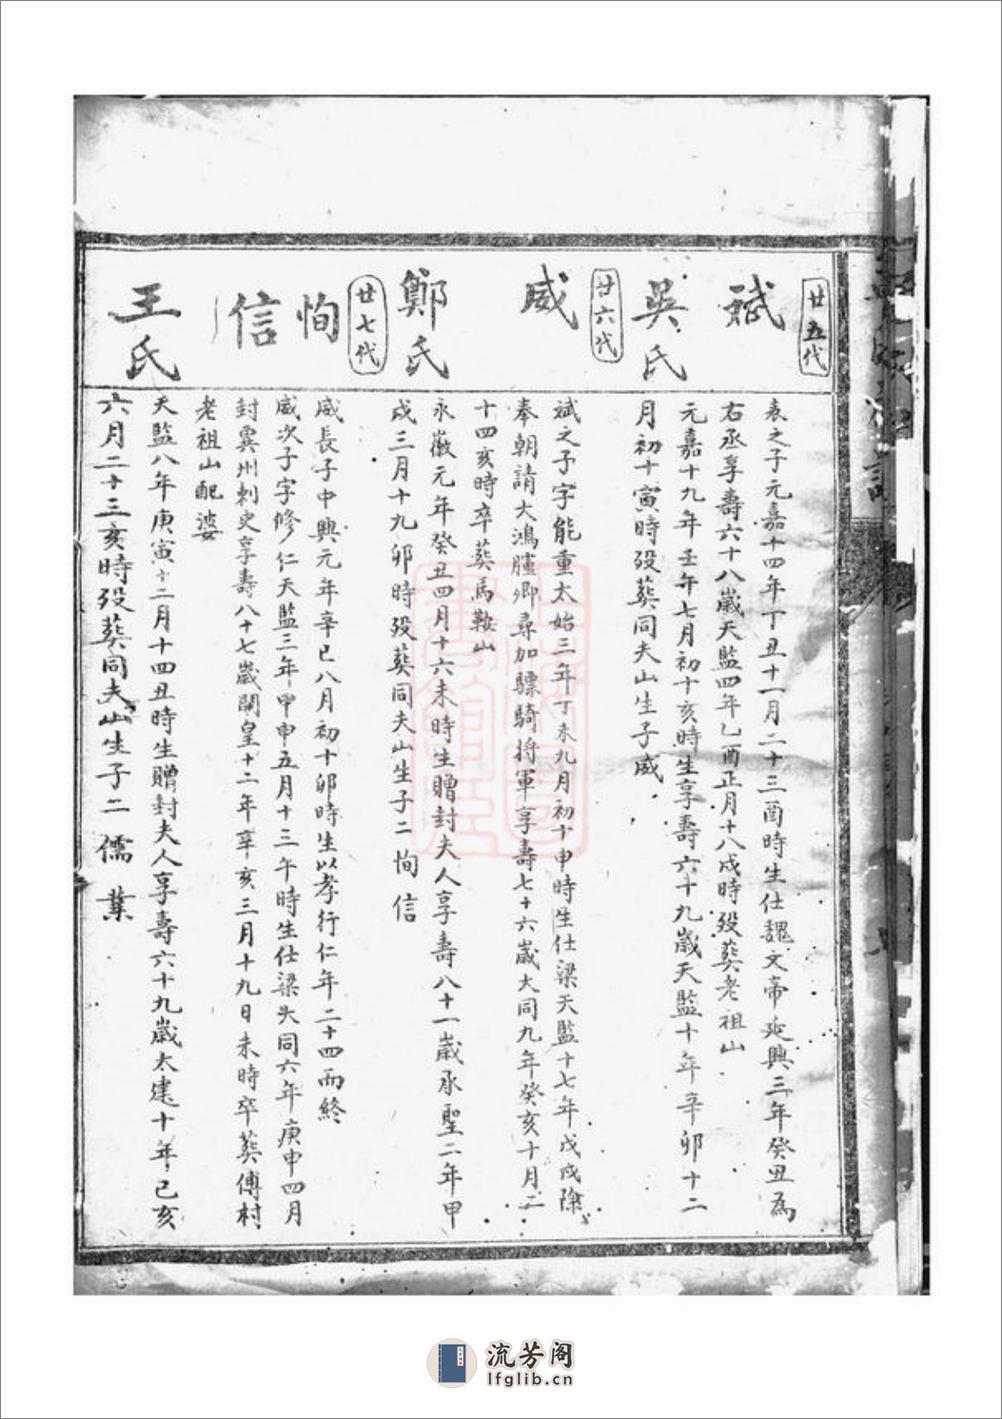 廿五代
斌
袁之子元嘉十四年丁丑十一月二十三酉時生仕魏文帝延興三年癸丑為
右丞享壽六十八歲天監四年乙酉正月十八戌時歿葬老祖山
吳氏
元嘉十九年壬午七月初十亥時生享壽六十九歲天監十年辛卯十二
月初十寅時歿葬同夫山生子威
廿六代
威
斌之子字能重太始三年丁未九月初十申時生仕梁天監十七年戊戌除
奉朝請大鴻臚卿尋加驃騎将軍享壽七十六歲大同九年癸亥十月二
十四亥時卒葬馬鞍山
鄭氏
永徽元年癸丑四月十六未時生贈封夫人享壽八十一歲承聖二年甲
戌三月十九卯時歿葬同夫山生子二恂信
廿七代
恂
威長子中興元年辛巳八月初十卯時生以孝行仁年二十四而終
信
威次子字修仁天監三年甲申五月十三午時生仕梁大同六年庚申四月
封冀州刺史享壽八十七歲開皇十二年辛亥三月十九日未時卒葬傅村
老祖山配婆
王氏
天監八年庚寅十二月十四丑時生贈封夫人享壽六十九歲太建十年己亥
六月二十三亥時歿葬同夫山生子二儒業
流芳阁
lfglib.cn